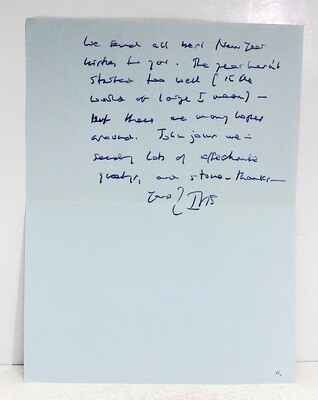 We send all best New Year
wishes to you. The year hasn't
started too well (in the
world at large I mean) –
but there are many hopes
around. John joins me –
sending lots of affectionate
greetings, and stone – thanks –
Iris